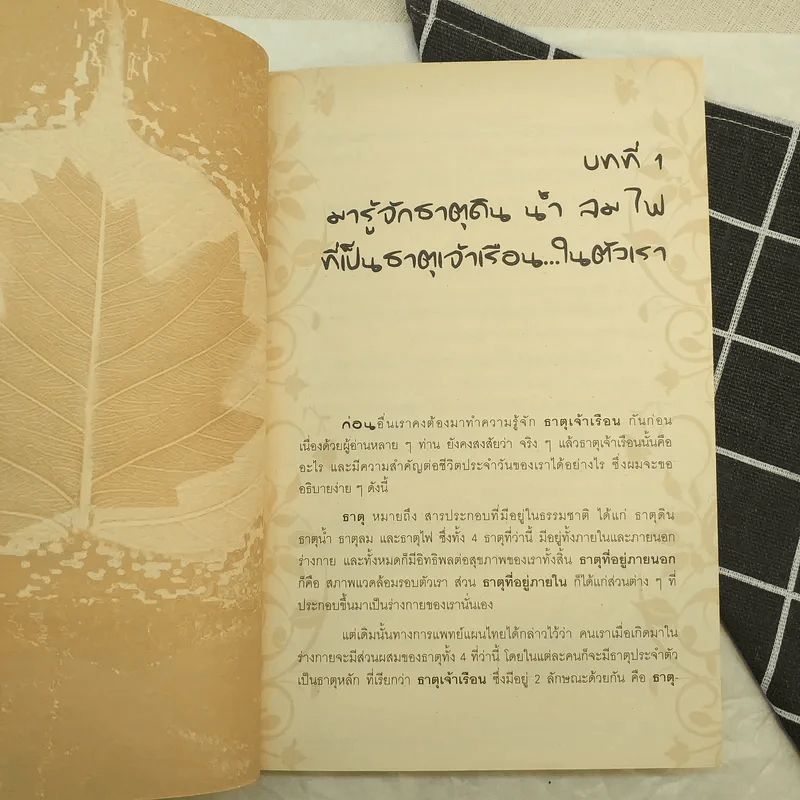 บทที่ 1
มารู้จักธาตุดิน น้ำ ลม ไฟ
ที่เป็นธาตุเจ้าเรือน...ในตัวเรา
ก่อนอื่นเราคงต้องมาทำความรู้จัก ธาตุเจ้าเรือน กันก่อน
เนื่องด้วยผู้อ่านหลาย ๆ ท่าน ยังคงสงสัยว่า จริง ๆ แล้วธาตุเจ้าเรือนนั้นคือ
อะไร และมีความสำคัญต่อชีวิตประจำวันของเราได้อย่างไร ซึ่งผมจะขอ
อธิบายง่าย ๆ ดังนี้
ธาตุ หมายถึง สารประกอบที่มีอยู่ในธรรมชาติ ได้แก่ ธาตุดิน
ธาตุน้ำ ธาตุลม และธาตุไฟ ซึ่งทั้ง 4 ธาตุที่ว่านี้ มีอยู่ทั้งภายในและภายนอก
ร่างกาย และทั้งหมดก็มีอิทธิพลต่อสุขภาพของเราทั้งสิ้น ธาตุที่อยู่ภายนอก
ก็คือ สภาพแวดล้อมรอบตัวเรา ส่วน ธาตุที่อยู่ภายใน ก็ได้แก่ส่วนต่าง ๆ ที่
ประกอบขึ้นมาเป็นร่างกายของเรานั่นเอง
แต่เดิมนั้นทางการแพทย์แผนไทยได้กล่าวไว้ว่า คนเราเมื่อเกิดมาใน
ร่างกายจะมีส่วนผสมของธาตุทั้ง 4 ที่ว่านี้ โดยในแต่ละคนก็จะมีธาตุประจำตัว
เป็นธาตุหลัก ที่เรียกว่า ธาตุเจ้าเรือน ซึ่งมีอยู่ 2 ลักษณะด้วยกัน คือ ธาตุ-